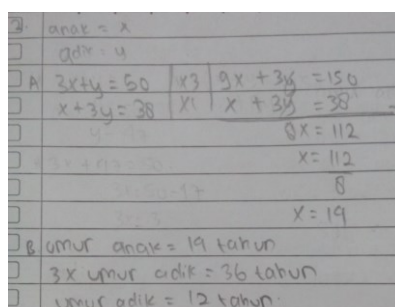 3. anak = x
adik = y
A 3x+y = 50 | x3 | 9x + 3y = 150
x + 3y = 38 | x1 | x + 3y = 38 -
8x = 112
x = 112
8
x = 19
B umur anak = 19 tahun
3x umur adik = 36 tahun
umur adik = 12 tahun.